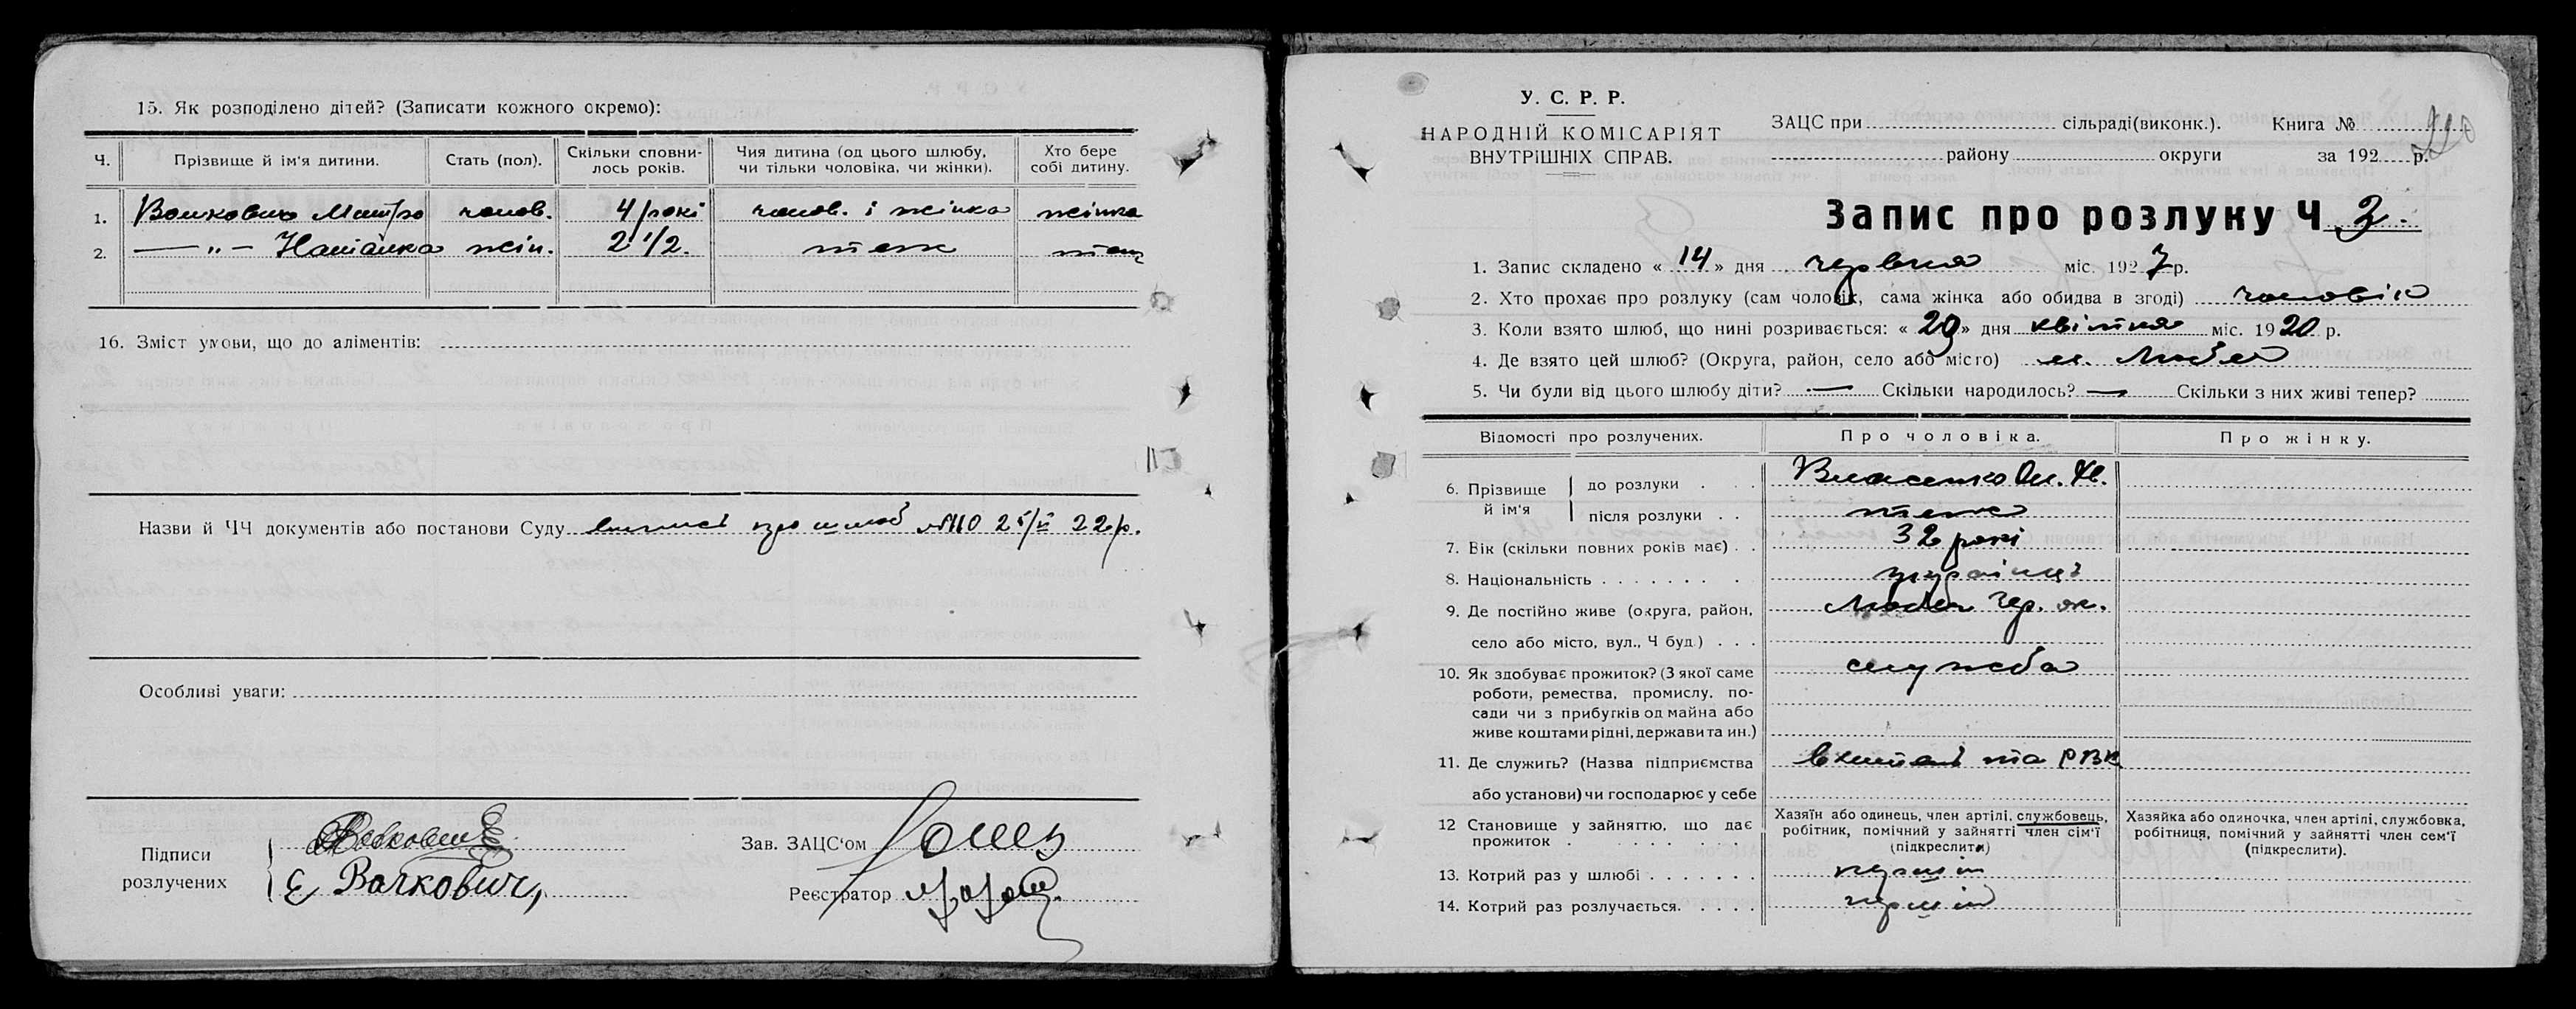 15. Як розподілено дітей? (Записати кожного окремо):
Ч. Прізвище й ім'я дитини. Стать (пол). Скільки сповни- лось років. Чия дитина (од цього шлюбу, чи тільки чоловіка, чи жінки). Хто бере собі дитину.
1. Волкович Митро чолов. 4 роки чолов. і жінка жінка
2. — „ — Наталка жін. 2 1/2. теж теж
16. Зміст умови, що до аліментів:
Назви й ЧЧ документів або постанови Суду випись про шлюб №110 22 р.
Особливі уваги:
Підписи розлучених
Е Волкович
Зав. ЗАЦС'ом
Реєстратор
У. С. Р. Р.
НАРОДНІЙ КОМІСАРІЯТ
ВНУТРІШНІХ СПРАВ.
ЗАЦС при сільраді (виконк.). Книга №
району округи за 192 р.
220
Запис про розлуку Ч 3.
1. Запис складено « 14 » дня червня міс. 1927 р.
2. Хто прохає про розлуку (сам чоловік, сама жінка або обидва в згоді) чоловік
3. Коли взято шлюб, що нині розривається: « 29 » дня квітня міс. 1920 р.
4. Де взято цей шлюб? (Округа, район, село або місто) м. Любеч
5. Чи були від цього шлюбу діти? — Скільки народилось? — Скільки з них живі тепер?
Відомості про розлучених. Про чоловіка. Про жінку.
6. Прізвище й ім'я до розлуки Власенко Ол.
після розлуки теж
7. Вік (скільки повних років має) 32 роки
8. Національність українець
9. Де постійно живе (округа, район, Любеч Чер. ок.
село або місто, вул., Ч буд.)
10. Як здобуває прожиток? (З якої саме служба
роботи, ремества, промислу, по-
сади чи з прибутків од майна або
живе коштами рідні, держави та ин.)
11. Де служить? (Назва підприємства та РВК
або установи) чи господарює у себе
12 Становище у зайняттю, що дає прожиток
Хазяїн або одинець, член артілі, службовець,
робітник, помічний у зайнятті член сім'ї
(підкреслити)
Хазяйка або одиночка, член артілі, службовка,
робітниця, помічний у зайнятті член сем'ї
(підкреслити).
13. Котрий раз у шлюбі перший
14. Котрий раз розлучається. перший